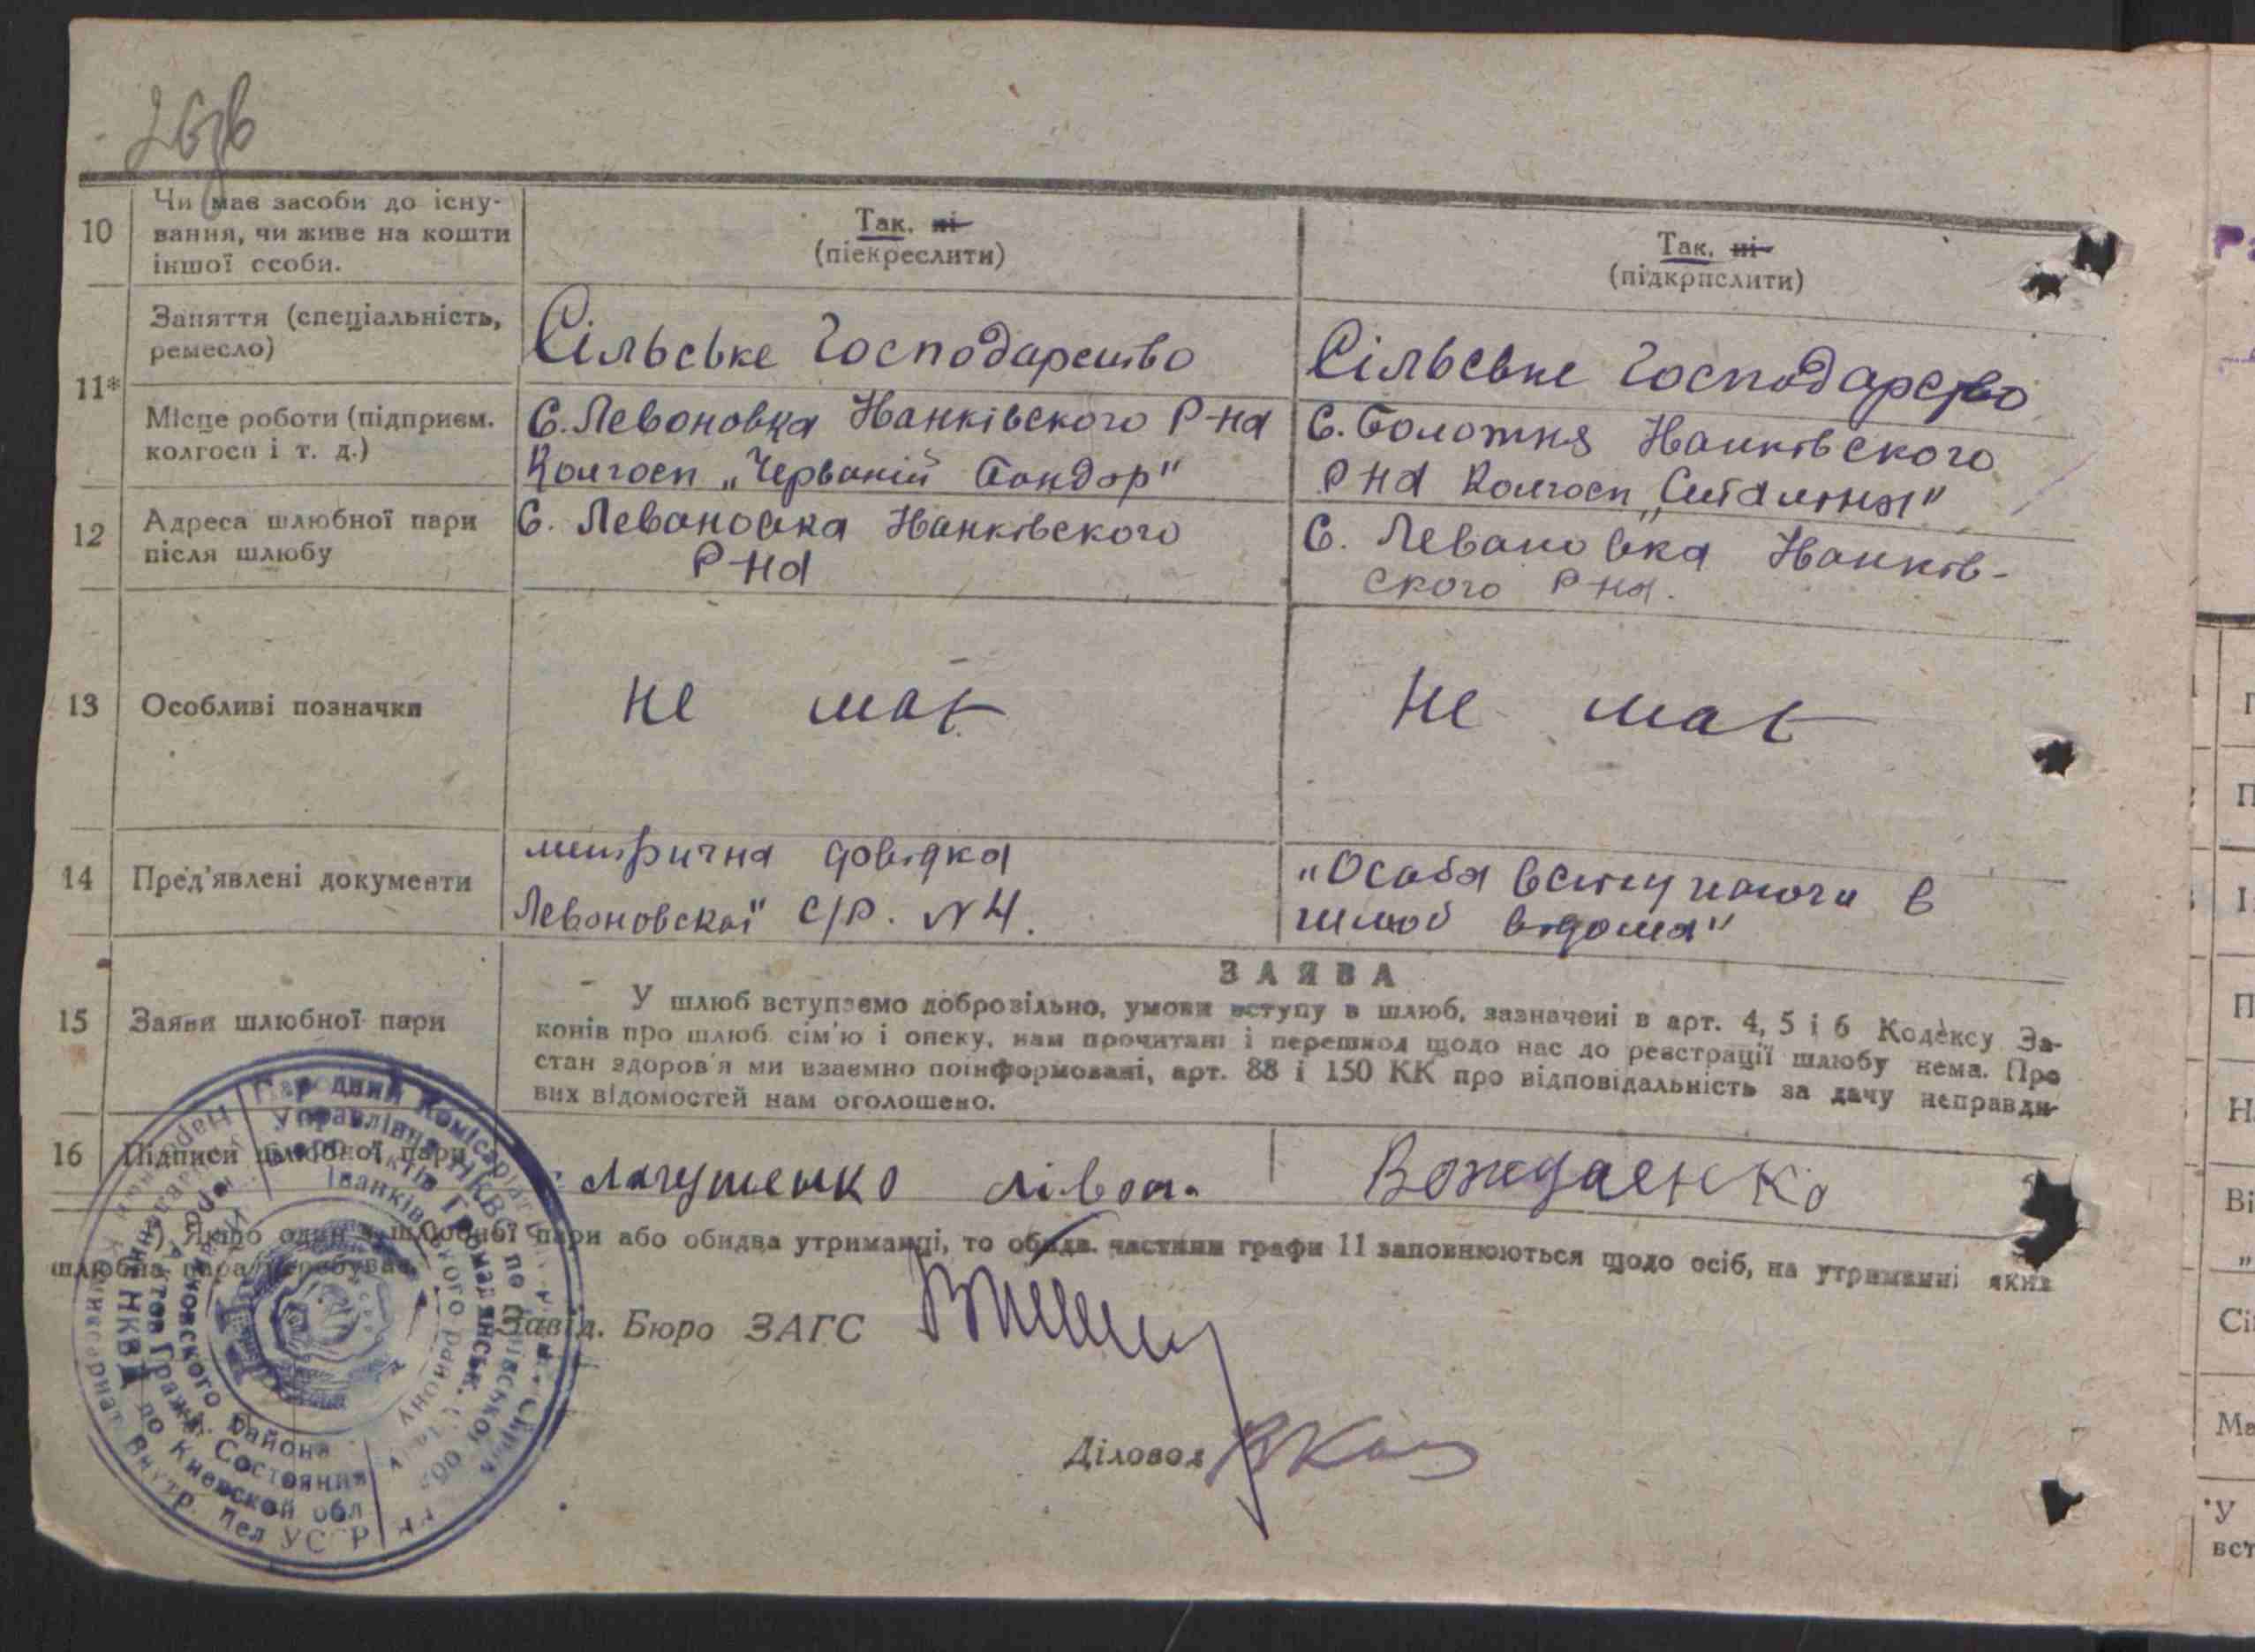 26зв
10 Чи має засоби до існу-
вання, чи живе на кошти
іншої особи.
Так. ні
(піекреслити)
Так. ні
(підкрпслити)
11*
Заняття (спеціальність,
ремесло)
Сільське Господарство
Сільське Господарство
Місце роботи (підприєм.
колгосп і т. д.)
С. Левоновка Иванківского Р-на
Колгосп „Червоний Бондар"
С. Болотня Иванківского
Р-на Колгосп „Сталіна"
12 Адреса шлюбної пари
після шлюбу
С. Левановка Иванківского
Р-на
С. Левановка Иванків-
ского Р-на.
13 Особливі позначки
не має
не має
14 Пред'явлені документи
метрична довідка
Левоновскої с/р. №4.
„Особа вступаючи в
шлюб відома"
15 Заяви шлюбної пари
ЗАЯВА
У шлюб вступаємо добровільно, умови вступу в шлюб, зазначені в арт. 4, 5 і 6 Кодексу За-
конів про шлюб сім'ю і опеку, нам прочитані і перешкод щодо нас до реєстрації шлюбу нема. Про
стан здоров'я ми взаємно поінформовані, арт. 88 і 150 КК про відповідальність за дачу неправди-
вих відомостей нам оголошено.
16 Підписи шлюбної пари
Вождаенко
*) Якщо один з шлюбної пари або обидва утриманці, то обидв. частини графи 11 заповнюються щодо осіб, на утриманні яких
шлюбна пара перебуває.
Завід. Бюро ЗАГС
Діловод
Народний Комісаріат
Управління НКВС по Київській обл.
Бюро Актів Громадянськ.
Іванківського району
Иванковского района
Актов Гражд. Состояния
НКВД по Киевской обл
Внутр. Дел УССР